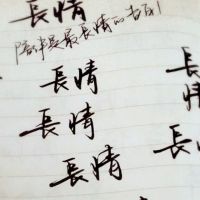 長情
陪伴是最長情的告白
長情
長
情
長情
長
長情